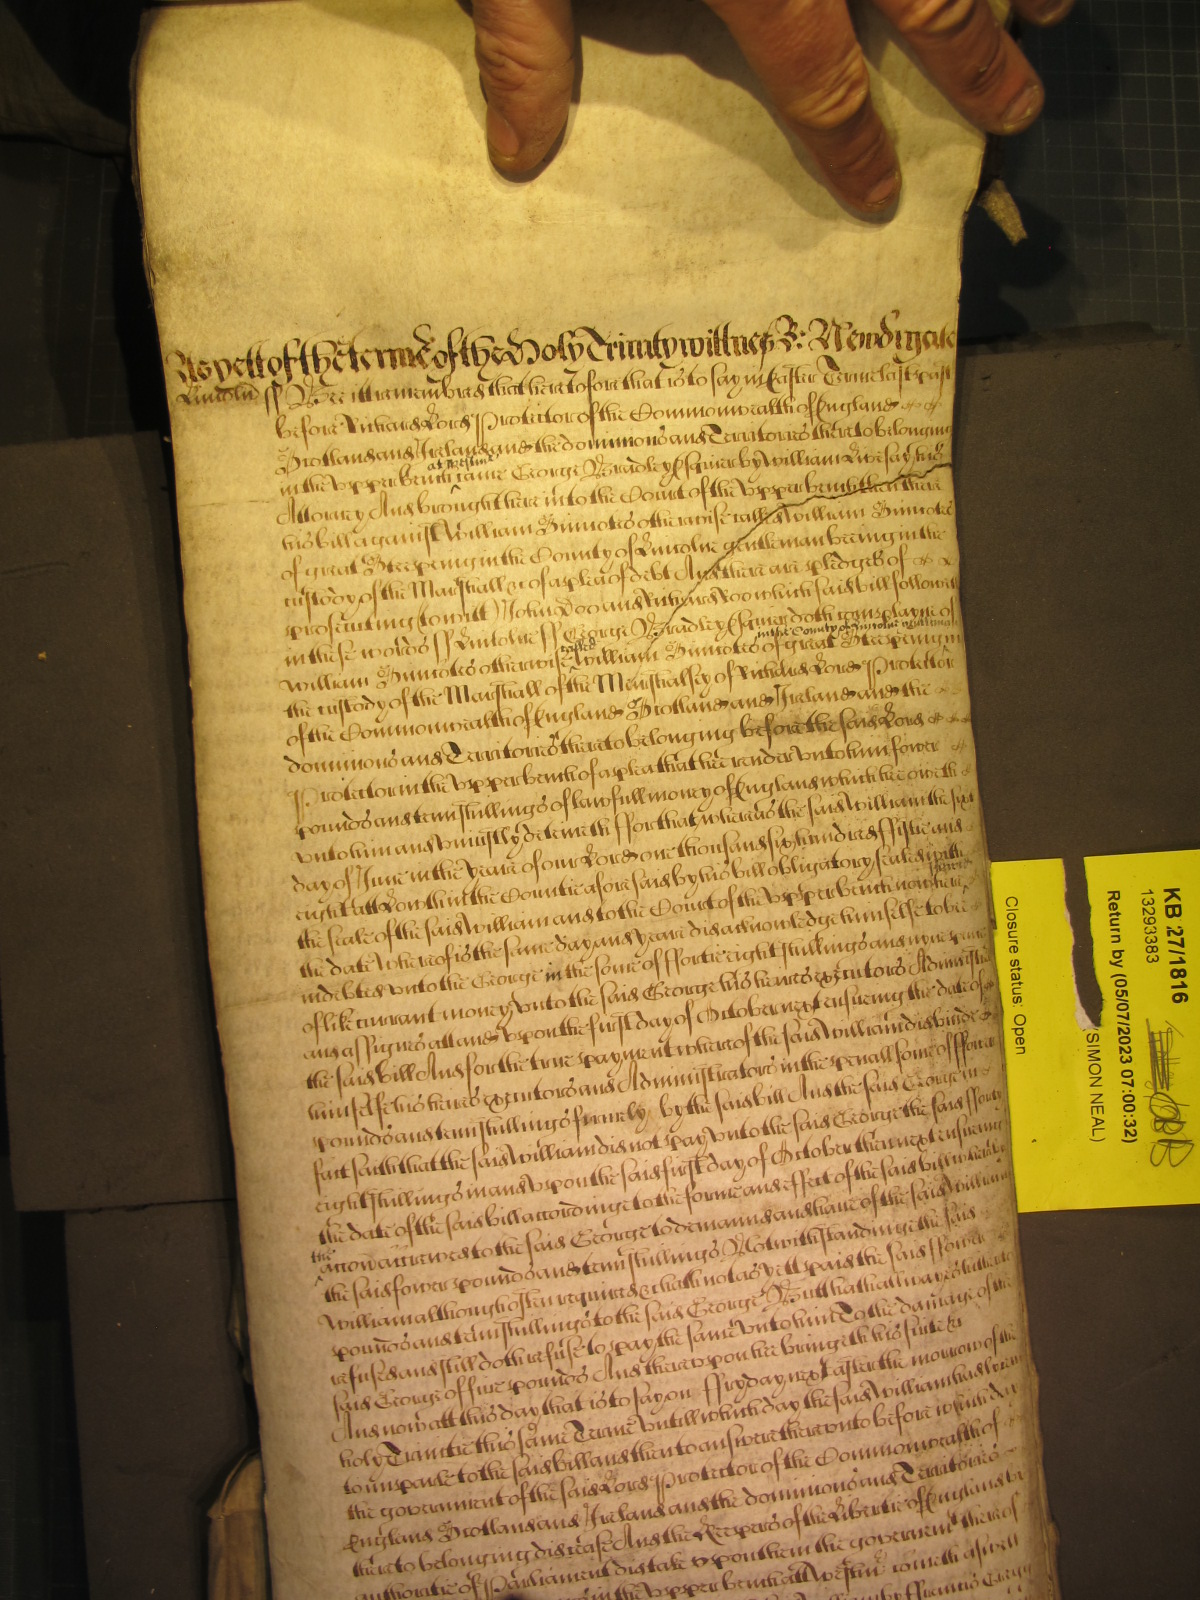 As yett of the terme of the Holy Trinity wittnes R: Newdigate
Lincoln ss Bee itt remembred that heretofore that is to say in Easter Terme last past
before Richard Lord Protector of the Commonwealth of England
Scotland and Ireland and the dominions and Territories thereto belonging
in the upper bench att Westmr came George Bradley Esquier by William Livesay his
Attorney And brought here into the Court of the upper bench then there
his bill against William Simnotes otherwise called William Simnotes
of great Steepeing in the County of Lincolne gentleman beeing in the
custody of the Marshall &c of a plea of debt And there are pledges of
prosecuting to witt John Doo and Richard Roo which said bill followeth
in these words ss Lincolne ss George Bradley Esquier doth complayne of
William Simnotes otherwise called William Simnotes of great Steepeing in the County of Lincolne gentleman in
the custody of the Marshall of the Marshalsey of Richard Lord Protector
of the Commonwealth of England Scotland and Ireland and the
dominions and Territories thereto belonging before the said Lord
Protector in the upper bench of a plea that hee render unto him fower
pounds and tenn shillings of lawfull money of England which hee oweth
unto him and uniustly deteineth ffor that whereas the said William the
day of June in the yeare of our Lord one thousand six hundred ffiftie and
eight att Lowth in the Countie aforesaid by his bill obligatory sealed with
the seale of the said William and to the Court of the upper bench now here shewed
the date whereof is the same day and yeare did acknowledge himselfe to bee
indebted unto the George in the some of ffortie eight shillings and
of like currant money unto the said George his heires executors Administrators
and assignes att and upon the first day of October next ensueing the date of
the said bill And for the true payment whereof the said William did binde
himselfe his heires executors and Administrators in the penall some of ffower
pounds and tenn shillings firmely by the said bill And the said George in
fact saith that the said William did not pay unto the said George the said fforty
eight shillings in and upon the said first day of October then next ensueing
the date of the said bill accordinge to the forme and effect of the said bill whereby
the accon accrewed to the said George to demaund and have of the said William
the said fower pounds and tenn shillings Notwithstandinge the said
William although often required &c hath not as yett paid the said ffower
pounds and tenn shillings to the said George But hath allwayes hitherto
refused and still doth refuse to pay the same unto him To the damage of the
said George of five pounds And thereupon hee bringeth his suite &c
And now att this day that is to say on ffryday next after the morrow of the
holy Trinitie this same Terme untill which day the said William had leave
to imparle to the said bill and then to answere thereunto before which day
the goverment of the said Lord Protector of the Commonwealth of
England Scotland and Ireland and the dominions and Territories
thereto belonging did cease And the Keepers of the Libertie of England by
authoritie of Parliament did take upon them the goverment thereof
in the upper bench att Westmr cometh aswell
by ffrancis
KB 27/1816
13293383
Return by (05/07/2023 07:00:32)
(SIMON NEAL)
Closure status: Open